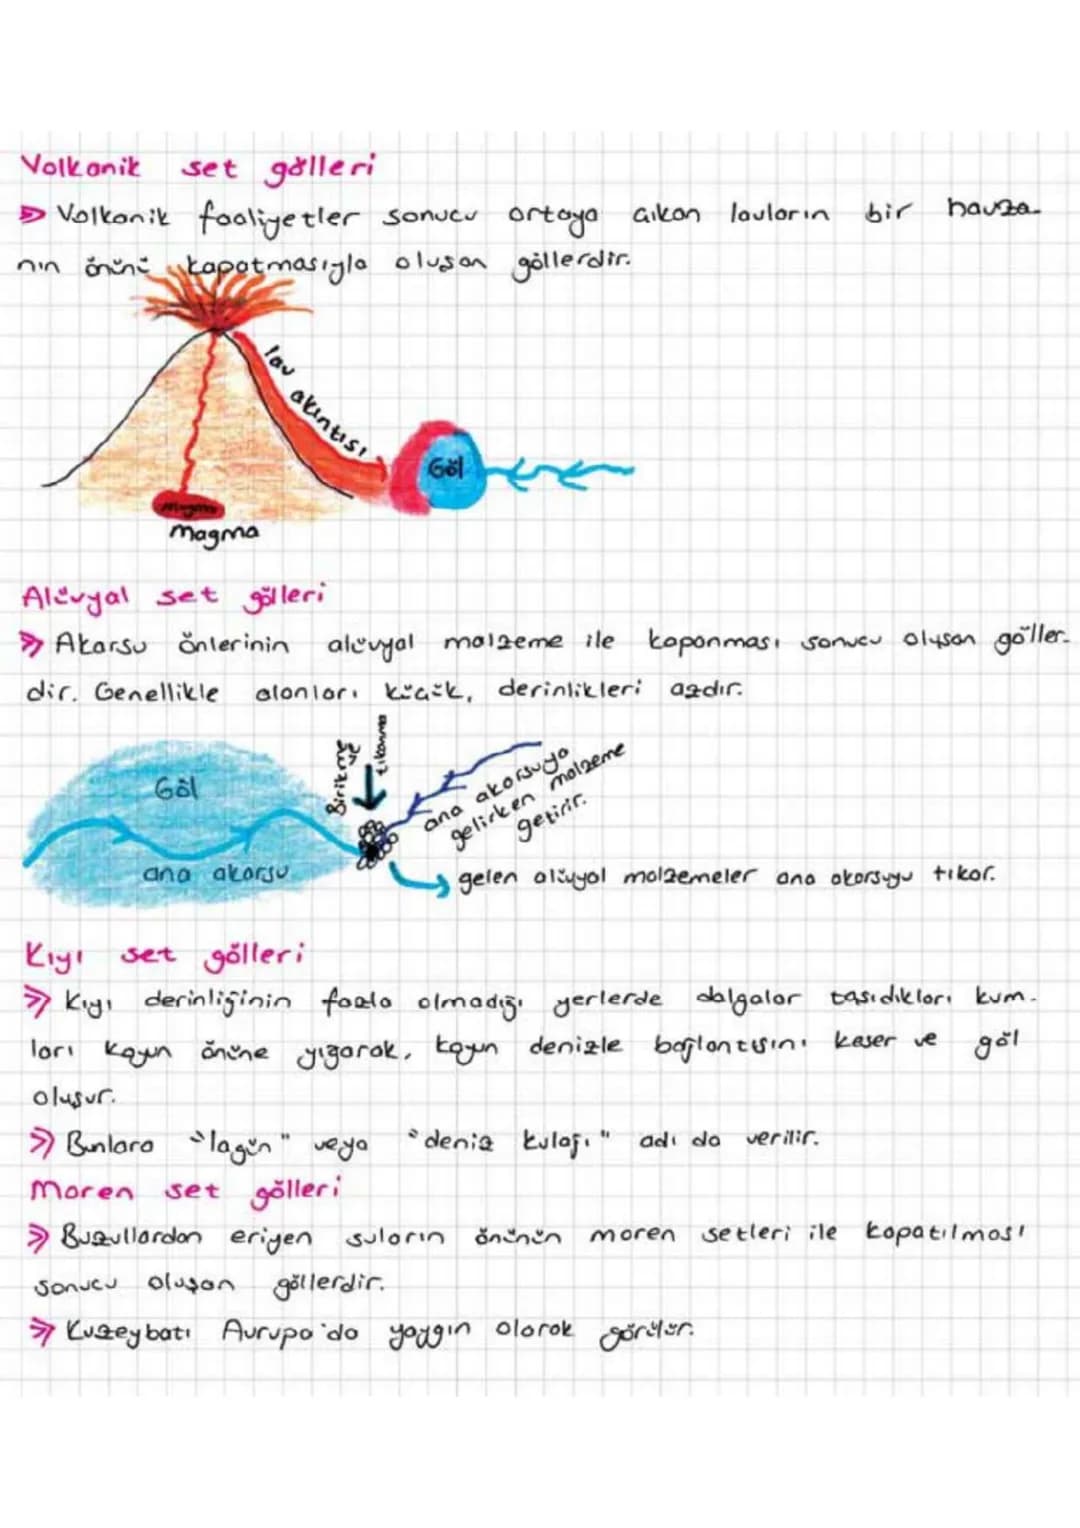 Volkanik set gölleri
Volkanik faaliyetler sonucu ortaya çıkan lavların bir havza-
nın önünü kapatmasıyla oluşan göllerdir.
lav akıntısı
Göl
magma
magma
Alüvyal set gölleri
Akarsu önlerinin alüvyal malzeme ile kapanması sonucu oluşan göller-
dir. Genellikle alanları küçük, derinlikleri azdır.
Birikme ve tıkanma
Göl
ana akarsuya
gelirken malzeme
getirir.
ana akarsu
gelen alüvyal malzemeler ana akarsuyu tıkar.
Kıyı set gölleri
Kıyı derinliğinin fazla olmadığı yerlerde dalgalar taşıdıkları kum-
ları koyun önüne yığarak, koyun denizle bağlantısını keser ve göl
oluşur.
Bunlara "lagün" veya "deniz kulağı" adı da verilir.
Moren set gölleri
Buzullardan eriyen suların önünün moren setleri ile kapatılması
sonucu oluşan göllerdir.
Kuzeybatı Avrupa'da yaygın olarak görülür.